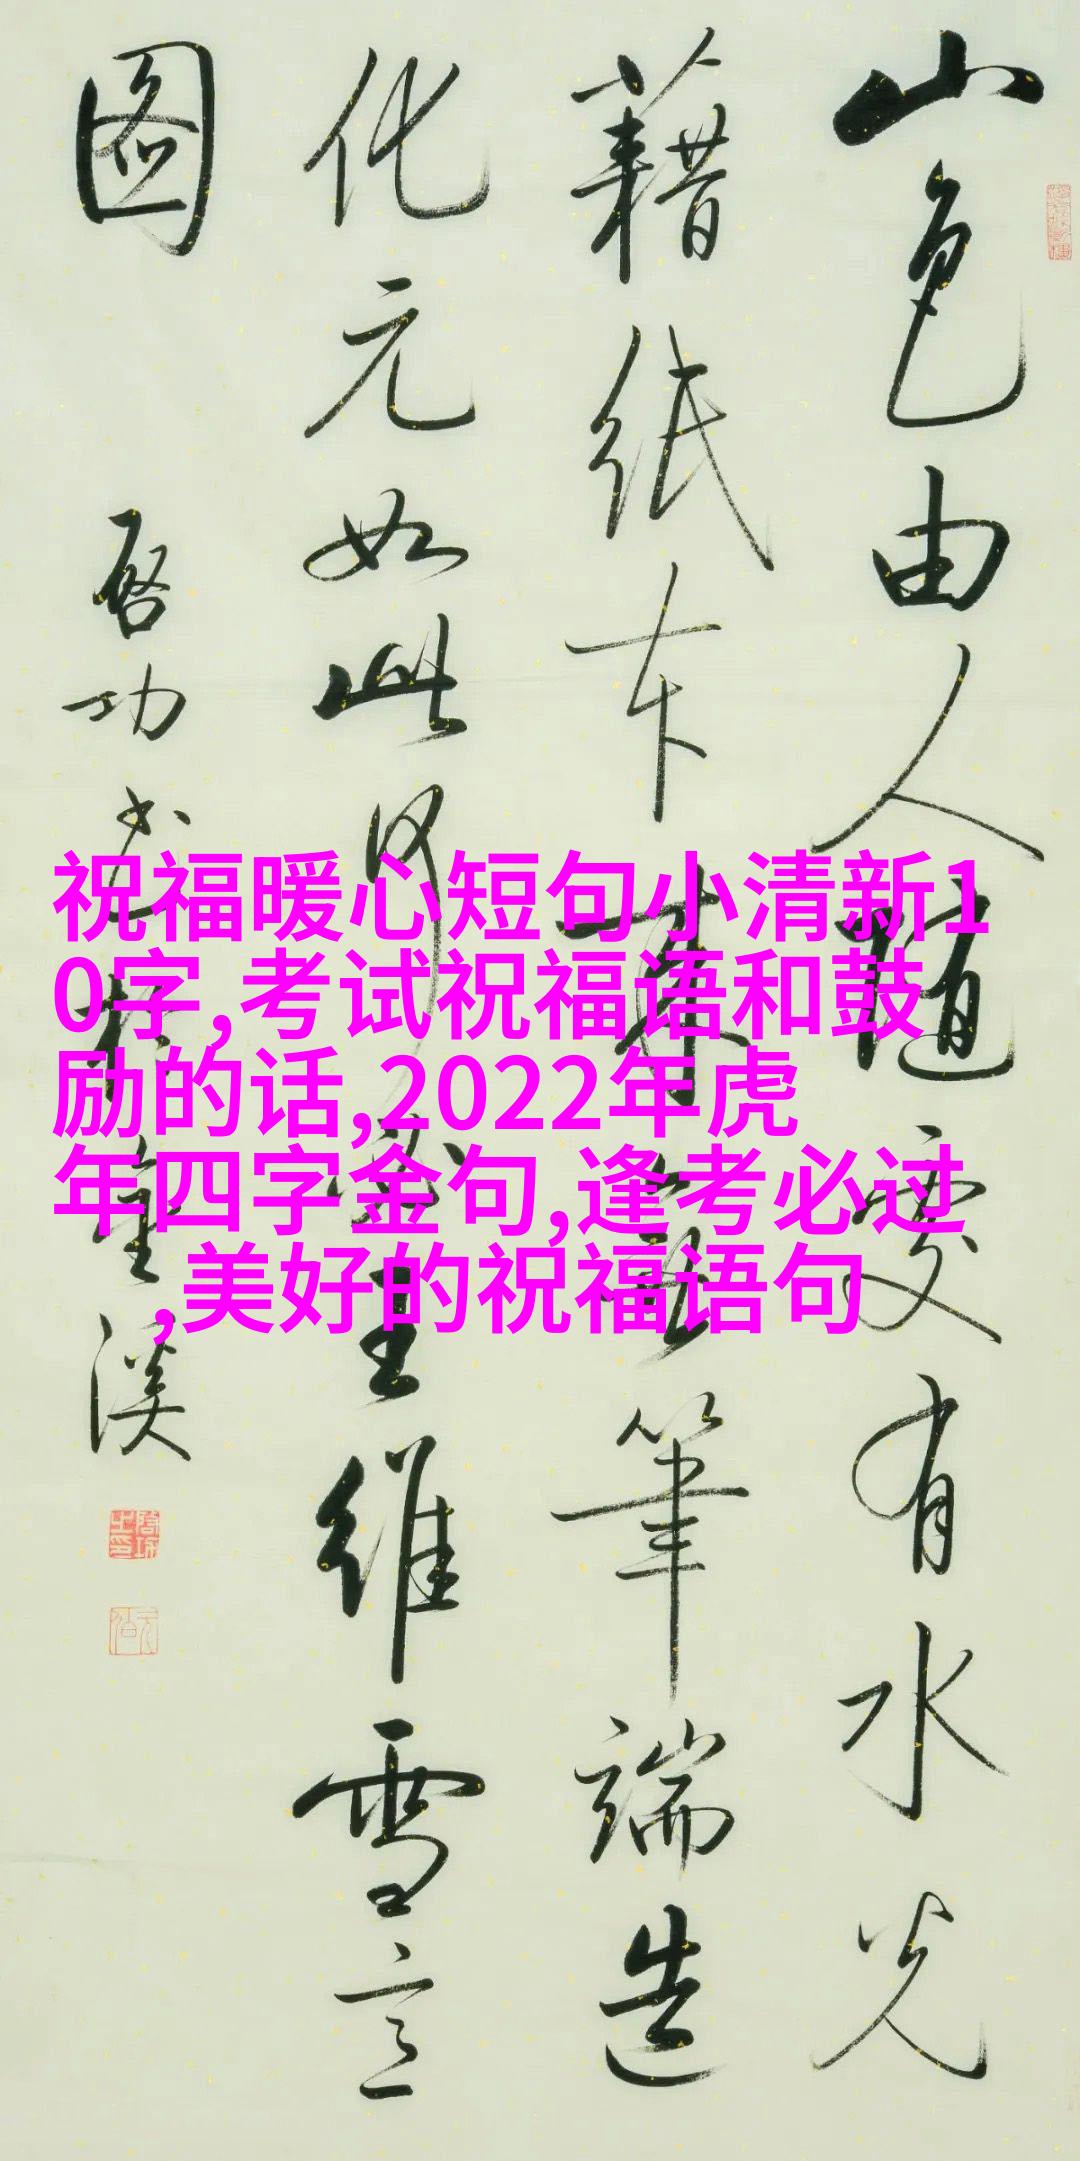 山色由人随变有水光
藉纸本来空笔端造
化元如此何必王维雪
图
启功书于
溪
祝福暖心短句小清新1
0字,考试祝福语和鼓
励的话,2022年虎
年四字金句,逢考必过
,美好的祝福语句